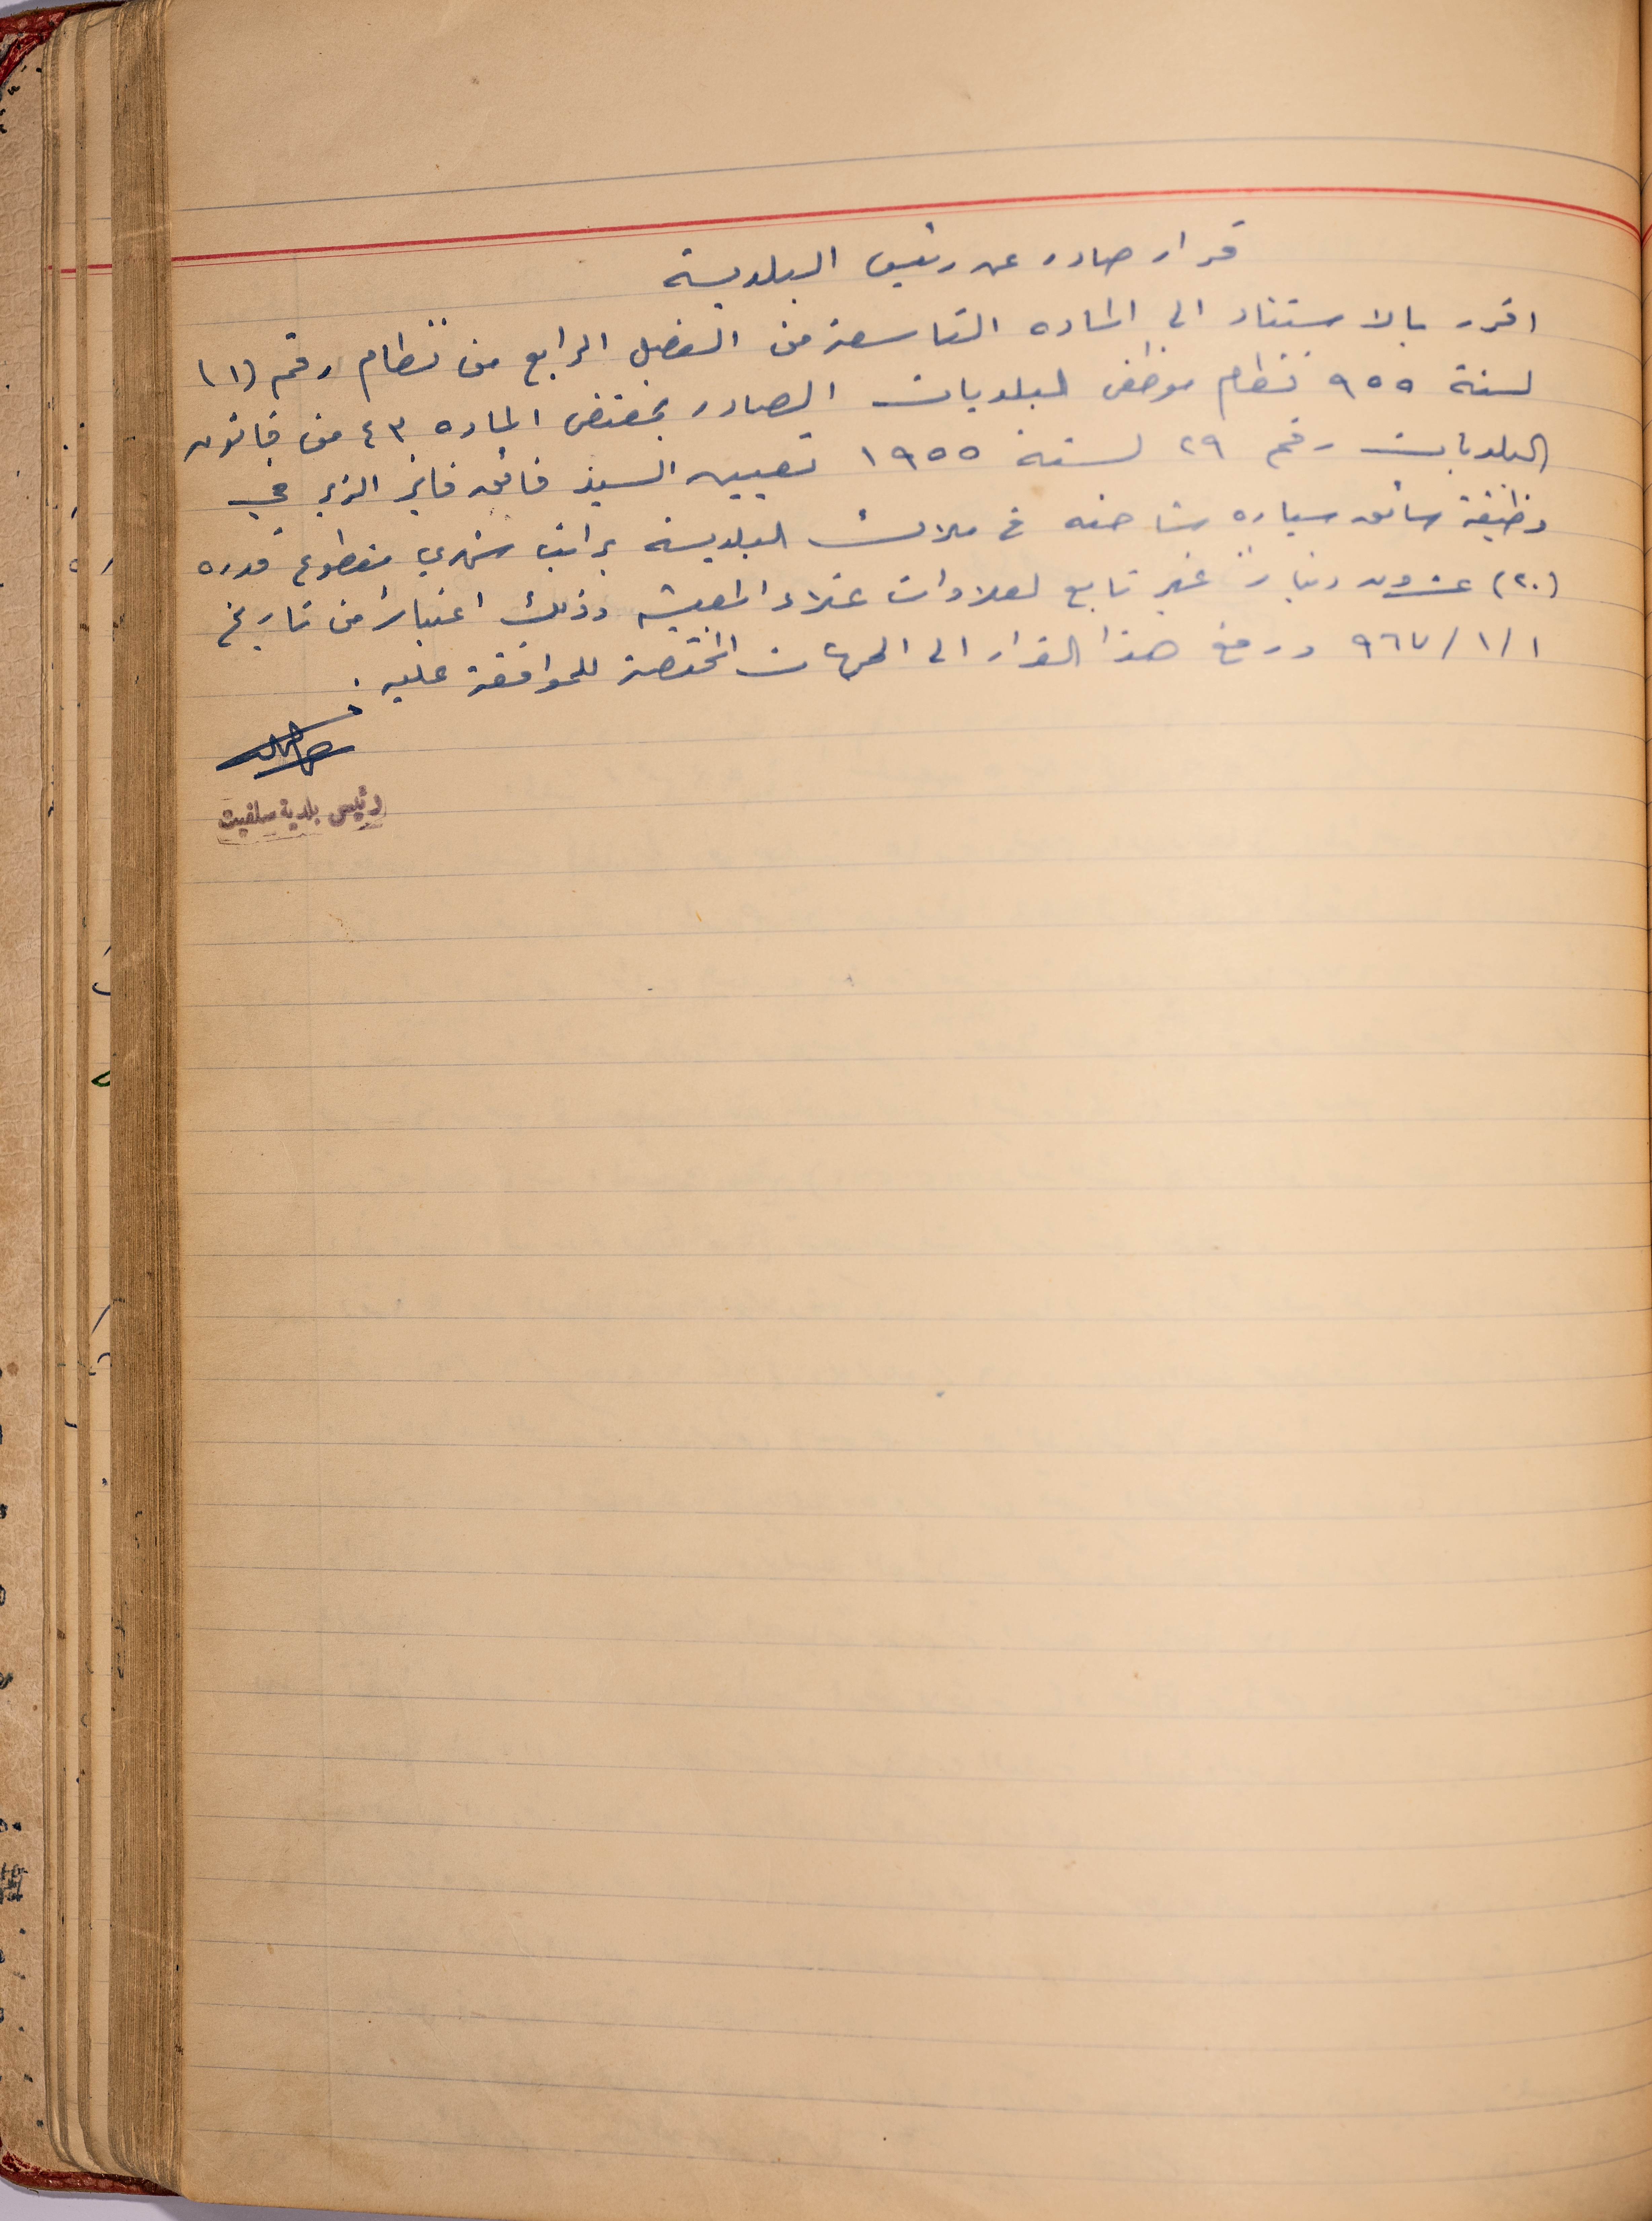 قرار صادر عن رئيس البلدية
اقرر بالاستناد الى الماده التاسعة من الفصل الرابع من نظام رقم (١)
لسنة ٩٥٥ نظام موظفي البلديات الصادر بمقتضى الماده ٤٣ من قانون
البلديات رقم ٢٩ لسنة ١٩٥٥ تعيين السيد فائق فايز الزير في
وظيفة سائق سياره شاحنه في ملاك البلدية براتب شهري مقطوع قدره
(٢٠) عشرون ديناراً غير تابع لعلاوات غلاء المعيشه وذلك اعتباراً من تاريخ
١/١/٩٦٧ ورفع هذا القرار الى الجهات المختصة للموافقة عليه .
رئيس بلدية سلفيت